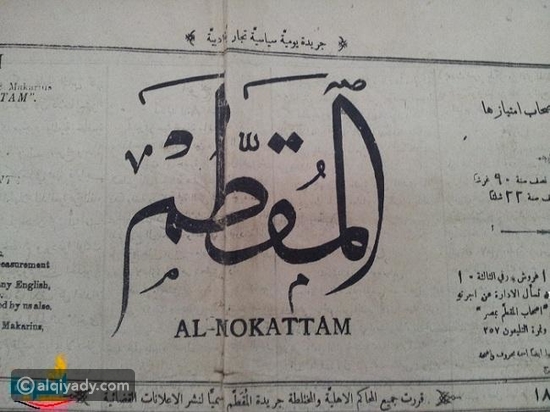 جريدة يومية سياسية تجارية ادبية
Makarius
TAM".
المقطم
AL-NOKATTAM
صحاب امتيازها
نصف سنة ٩٠ غرشا
سنة ٢٢ شلنا
easurement
ny English,
ed by us also.
Makarius,
غروش وفي الثالثة ١٠
تسأل الادارة عن اجرتو
اصحاب المقطم بمصر
ونمرة التليفون ٢٥٧
قررت جميع المحاكم الاهلية والمختلطة جريدة المقطم رسميا لنشر الاعلانات القضائية
١٨
alqiyady.com